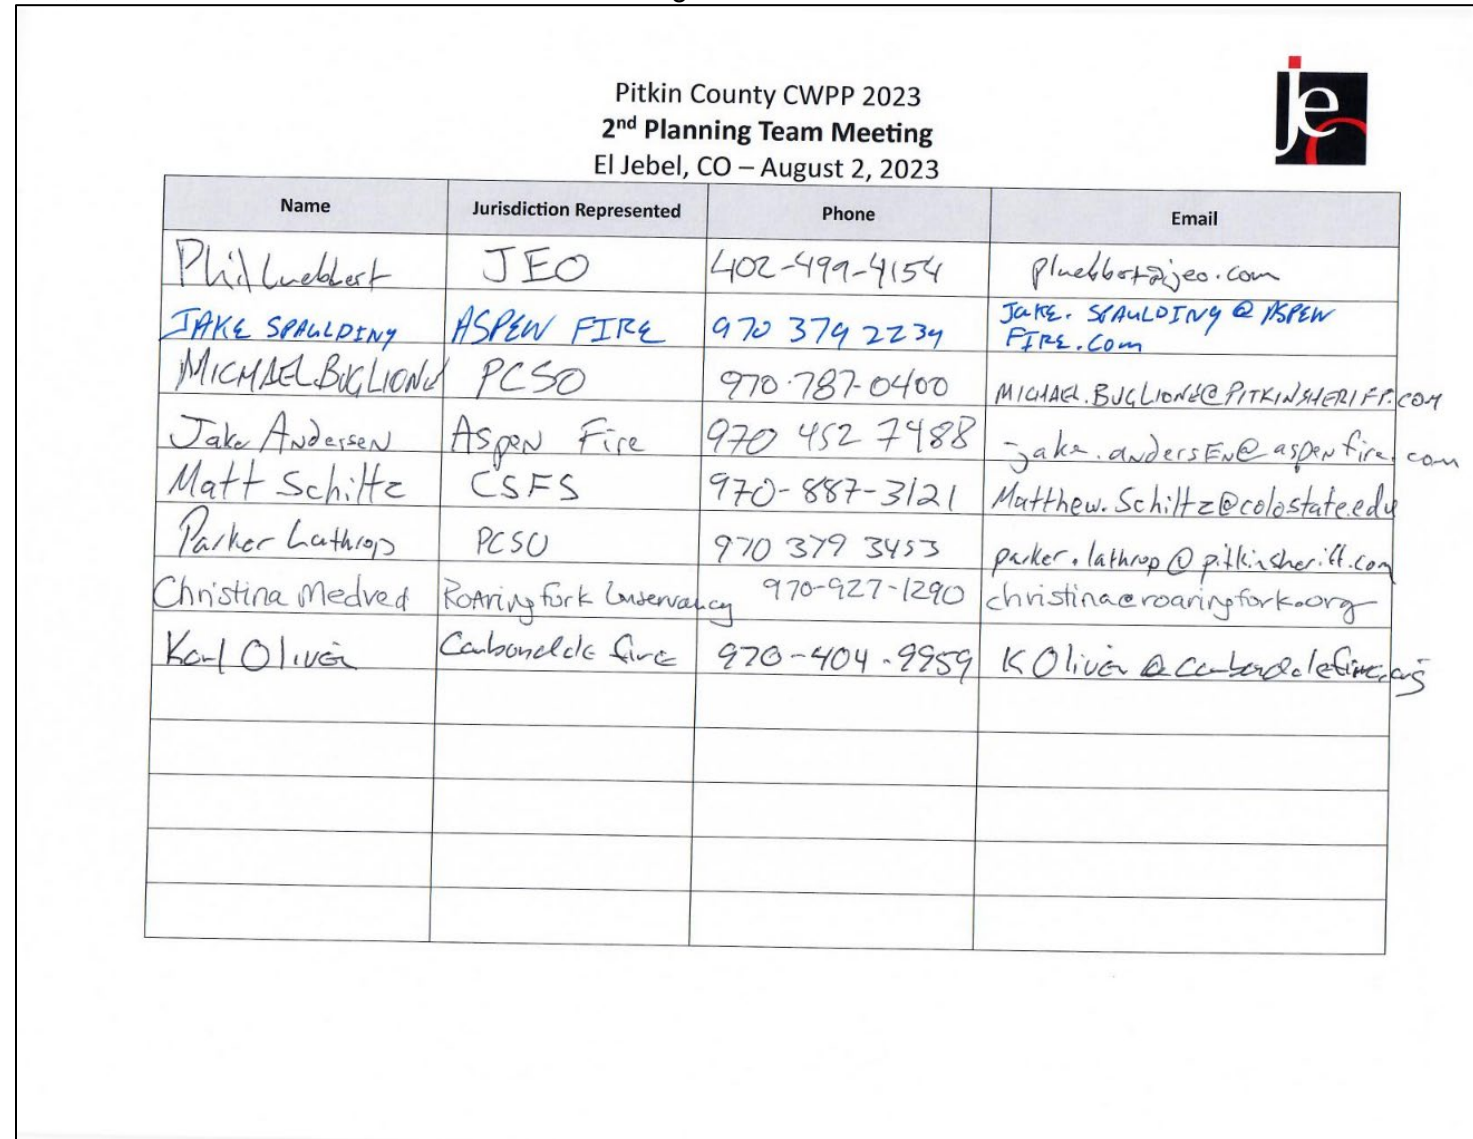 Pitkin County CWPP 2023
je
2nd Planning Team Meeting
El Jebel, CO – August 2, 2023
Name Jurisdiction Represented Phone Email
Phil Luebbert JEO 402-499-4154 pluebbert@jeo.com
JAKE SPAULDING ASPEN FIRE 970 379 2239 JAKE.SPAULDING @ ASPEN
FIRE.COM
MICHAEL BUGLIONE PCSO 970-787-0400 MICHAEL.BUGLIONE@PITKINSHERIFF.COM
Jake Andersen Aspen Fire 970 452 7488 jake.andersEn@aspenfire.com
Matt Schiltz CSFS 970-887-3121 Matthew.Schiltz@colostate.edu
Parker Lathrop PCSO 970 379 3453 parker.lathrop@pitkinsheriff.com
Christina Medved Roaring Fork Conservancy 970-927-1290 christina@roaringfork.org
Karl Oliver Carbondale fire 970-404-9959 KOliver@carbondalefire.org